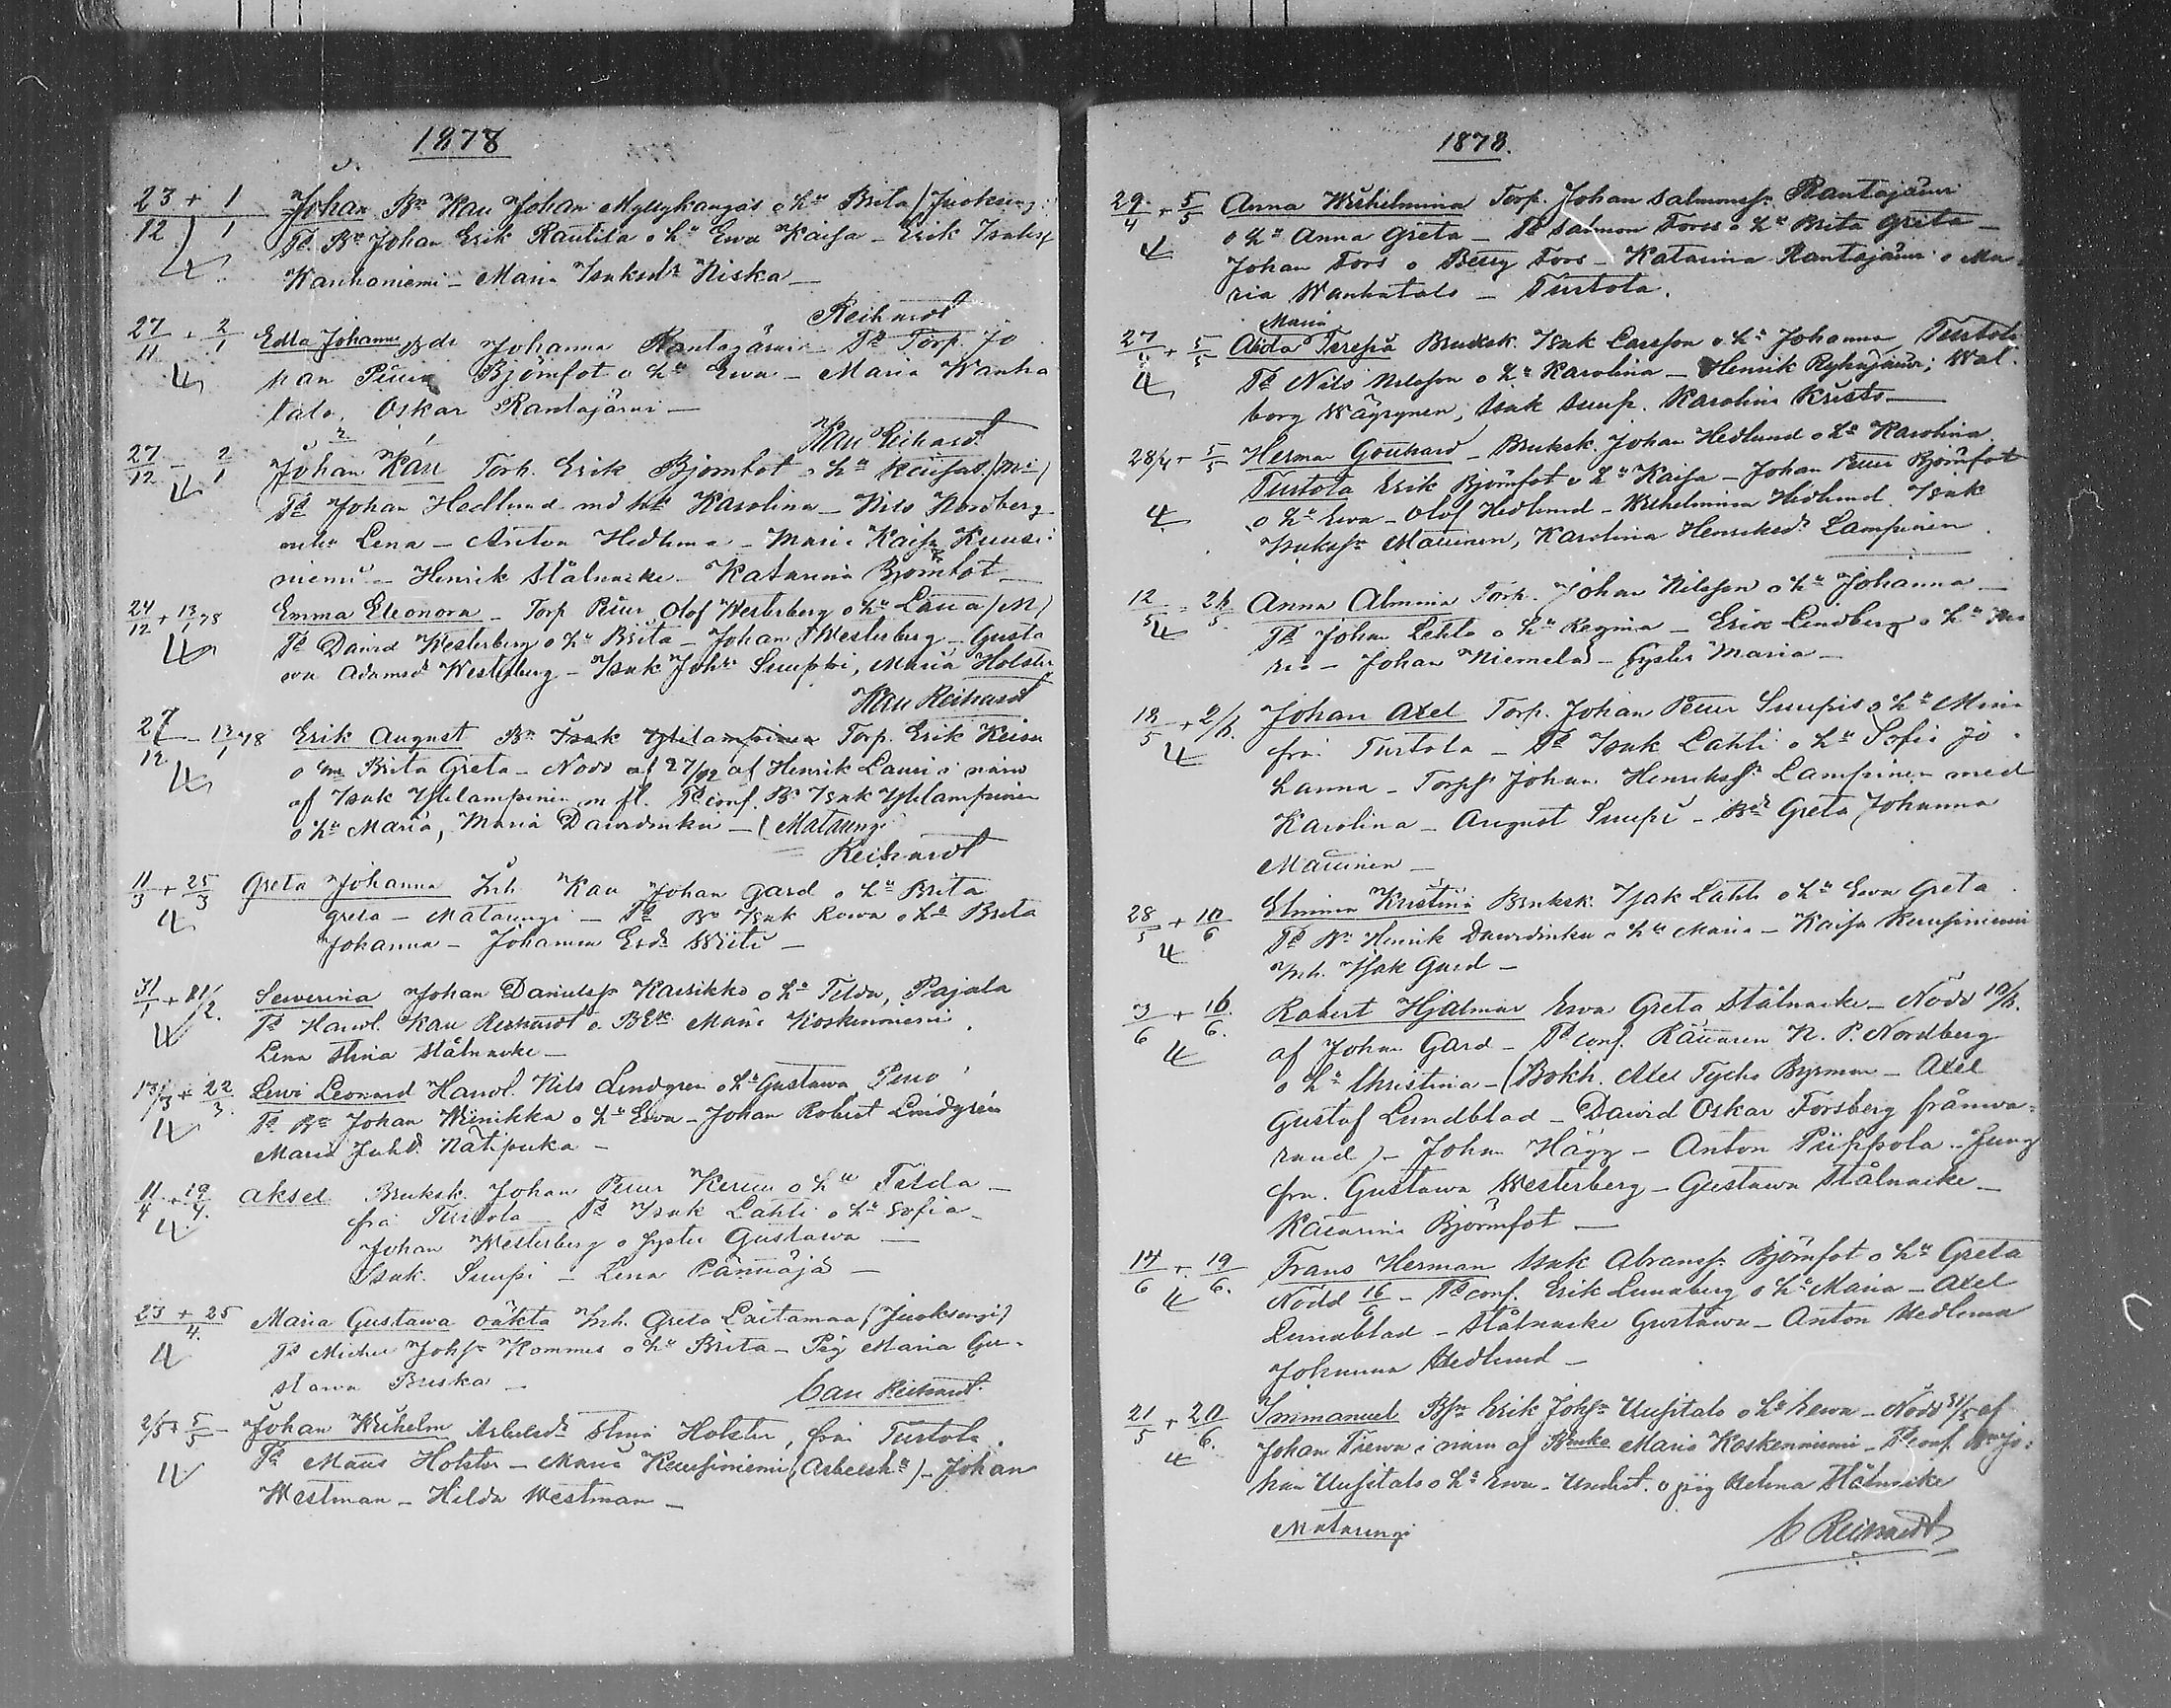 1878
23/12 + 1/1 Johan Bn Karl Johan Myllykangas o hu Brita (Juoksengi
Td Bn Johan Erik Rautila o hu Ewa Kaisa - Erik Isakss
4 Wanhaniemi - Maria Isaksdr Niska -
Reihardt
27/11 + 2/1 Edla Johanna Bdr Johanna Rantajärvi - Td Torp. Jo
4 han Petter Björnfot o hu Ewa - Maria Wanha
talo, Oskar Rantajärvi -
Karl Reihardt
27/12 - 2/1 Johan Karl Torp. Erik Björnfot o hu Kaisa
4 Td Johan Hedlund md hu Karolina - Nils Nordberg
Lena - Anton Hedlund - Maria Kaisa Kuusi:
niemi - Henrik Stålnacke - Katarina Björnfot -
24/12 + 13/1 78 Emma Eleonora - Torp Petter Olof Westerberg o hu Laura (M)
4 Td David Westerberg o hu Brita - Johan Westerberg - Gusta
va Adamsdr Westerberg - Isak Johss Suuppi, Maria Holster
Karl Reihardt
27/12 - 13/1 78 Erik August Bn Isak Ylilampinen Torp. Erik Keisu
4 o hu Brita Greta - Nödd af 27/12 af Henrik Lauri i närv
af Isak Ylilampinen m fl. Td conf. Bn Isak Ylilampinen
o hu Maria, Maria Davidinkur - (Matarengi
Reihardt
11/3 + 25/3 Greta Johanna Inh. Karl Johan Gard o hu Brita
4 greta - Matarengi - Td Bn Isak Rova o hu Brita
Johanna - Johanna Ersdr Wiiti -
31/1 + 21/2. Severina Johan Danielss Karsikko o hu Tilda, Pajala
4 Td Handl. Karl Reihardt o Maria Koskenniemi.
Lena Stina Stålnacke -
13/3 + 22/3. Levi Leonard Handl. Nils Lindgren o hu Gustava Peno
4 Td Bn Johan Winikka o hu Ewa - Johan Robert Lindgren
Maria Johsdr Nätipuka -
11/4 + 19/4. Aksel Bruksk. Johan Petter Kerttu o hu Tilda -
4 från Turtola - Td Isak Lahti o hu Sofia -
Johan Westerberg o syster Gustava -
Isak Suupi - Lena Pännäjä -
23 + 25/4. Maria Gustava oäkta Inh. Greta Laitamaa (Juoksengi)
4 Td Michel Johss Kommes o hu Brita - Pig Maria Gu-
stava Briska - Carl Reihardt.
2/5 + 5/5 - Johan Wilhelm Arbetsdr Stina Holster, från Turtola.
4 Td Mauus Holster - Maria Kuusiniemi (Arbetshu) - Johan
Westman - Hilda Westman -
1878.
29/4 + 5/5 Anna Wilhelmina Torp. Johan Salmonss. Rantajärvi
4 o hu Anna Greta - Td Salmon Fors o hu Brita Greta -
Johan Fors o Betty Fors - Katarina Rantajärvi o Ma-
ria Wanhatalo - Turtola.
Maria
27/4 + 5/5 Alida Teresia Bruksk. Isak Larsson o hu Johanna Turtola
4 Td Nils Nilsson o hu Karolina - Henrik Rytkäjärvi; Wal-
borg Wäyrynen, Isak Suup. Karolina Kristo -
28/4 + 5/5 Herman Gotthard - Bruksk. Johan Hedlund o hu Karolina
Turtola Erik Björnfot o hu Kaisa - Johan Petter Björnfot
4 o hu Ewa - Olof Hedlund - Wilhelmina Hedlund Isak
Isakss Matinen, Karolina Henriksdr Lampinen.
12/5 + 26/5 Anna Almina Torp. Johan Nilsson o hu Johanna -
4 Td Johan Lehto o hu Regina - Erik Lindberg o hu Ma
ria - Johan Niemelä - Syster Maria -
18/5 + 2/6. Johan Axel Torp. Johan Petter Suupis o hu Mina
4 från Turtola - Td Isak Lahti o hu Sofia Jo-
hanna - Torps Johan Henrikss Lampinen med
Karolina - August Suupi - Bdr Greta Johanna
Matinen -
28/5 + 10/6 Elmina Kristina Bruksk. Isak Lahti o hu Ewa Greta
4 Td Bn Henrik Davidinkur o hu Maria - Kaisa Kuusiniemi
Inh. Isak Gard -
3/6 + 16/6. Robert Hjalmar Ewa Greta Stålnacke - Nödd 10/6.
4 af Johan Gard - Td conf. Rättaren N. P. Nordberg
o hu Christina - (Bokh. Axel Tycho Byrman - Axel
Gustaf Lundblad - David Oskar Forsberg frånva-
rand) - Johan Hägg - Anton Piippola - Jung
fru. Gustava Westerberg - Gustava Stålnacke -
Katarina Björnfot -
14/6 + 19/6. Frans Herman Isak Abramss Björnfot o hu Greta
4 Nödd 16/6 - Td conf. Erik Lundberg o hu Maria - Axel
Lundblad - Stålnacke Gustava - Anton Hedlund
Johanna Hedlund -
21/5 + 20/6. Immanuel Bss Erik Johss Uusitalo o hu Ewa - Nödd 31/5 af
4 Johan Trewa i närv af Maria Koskenniemi - Td conf. Bn Jo:
han Uusitalo o hu Ewa - o pig Helena Stålnacke
Matarengi C Reihardt